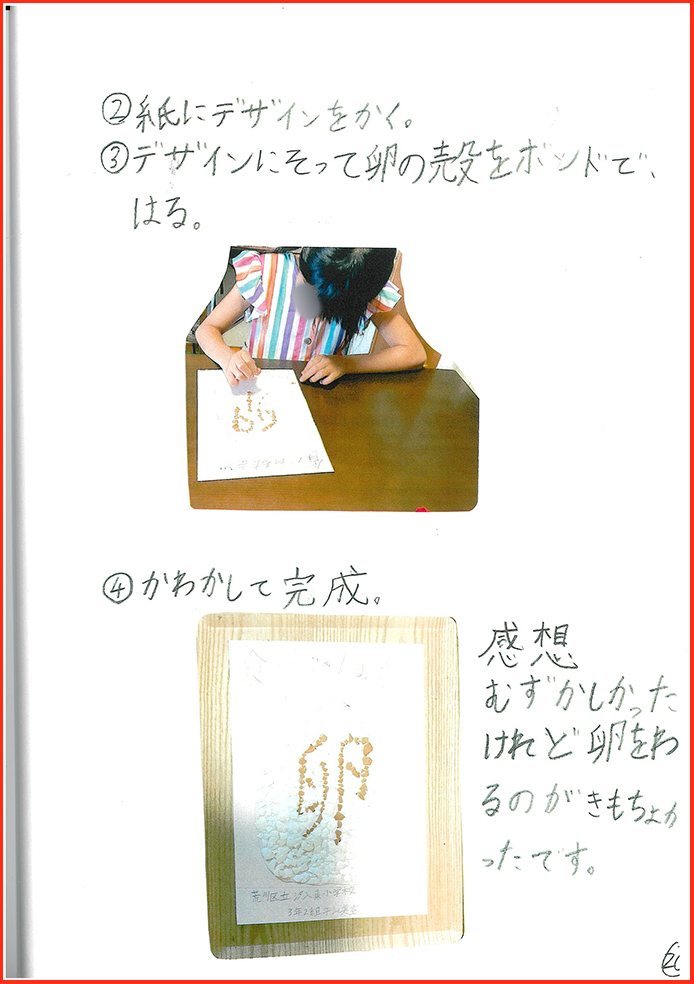 ②紙にデザインをかく。
③デザインにそって卵の殻をボンドで、
はる。
④かわかして完成。
感想
むずかしかった
けれど卵をわ
るのがきもちよか
ったです。
卵
荒川区立
3年2組